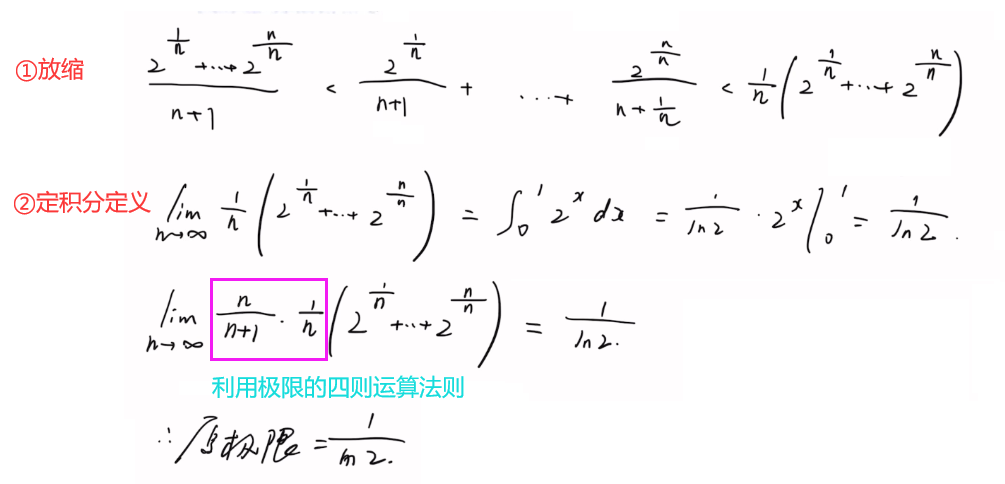 ①放缩 $\frac{2^{\frac{1}{n}}+\cdots+2^{\frac{n}{n}}}{n+1} < \frac{2^{\frac{1}{n}}}{n+1} + \cdots + \frac{2^{\frac{n}{n}}}{n+\frac{1}{n}} < \frac{1}{n}\left(2^{\frac{1}{n}}+\cdots+2^{\frac{n}{n}}\right)$
②定积分定义 $\lim_{n\to\infty} \frac{1}{n}\left(2^{\frac{1}{n}}+\cdots+2^{\frac{n}{n}}\right) = \int_0^1 2^x dx = \frac{1}{\ln 2} \cdot 2^x \Big|_0^1 = \frac{1}{\ln 2}.$
$\lim_{n\to\infty} \frac{n}{n+1} \cdot \frac{1}{n}\left(2^{\frac{1}{n}}+\cdots+2^{\frac{n}{n}}\right) = \frac{1}{\ln 2}.$
利用极限的四则运算法则
∴原极限 $= \frac{1}{\ln 2}.$